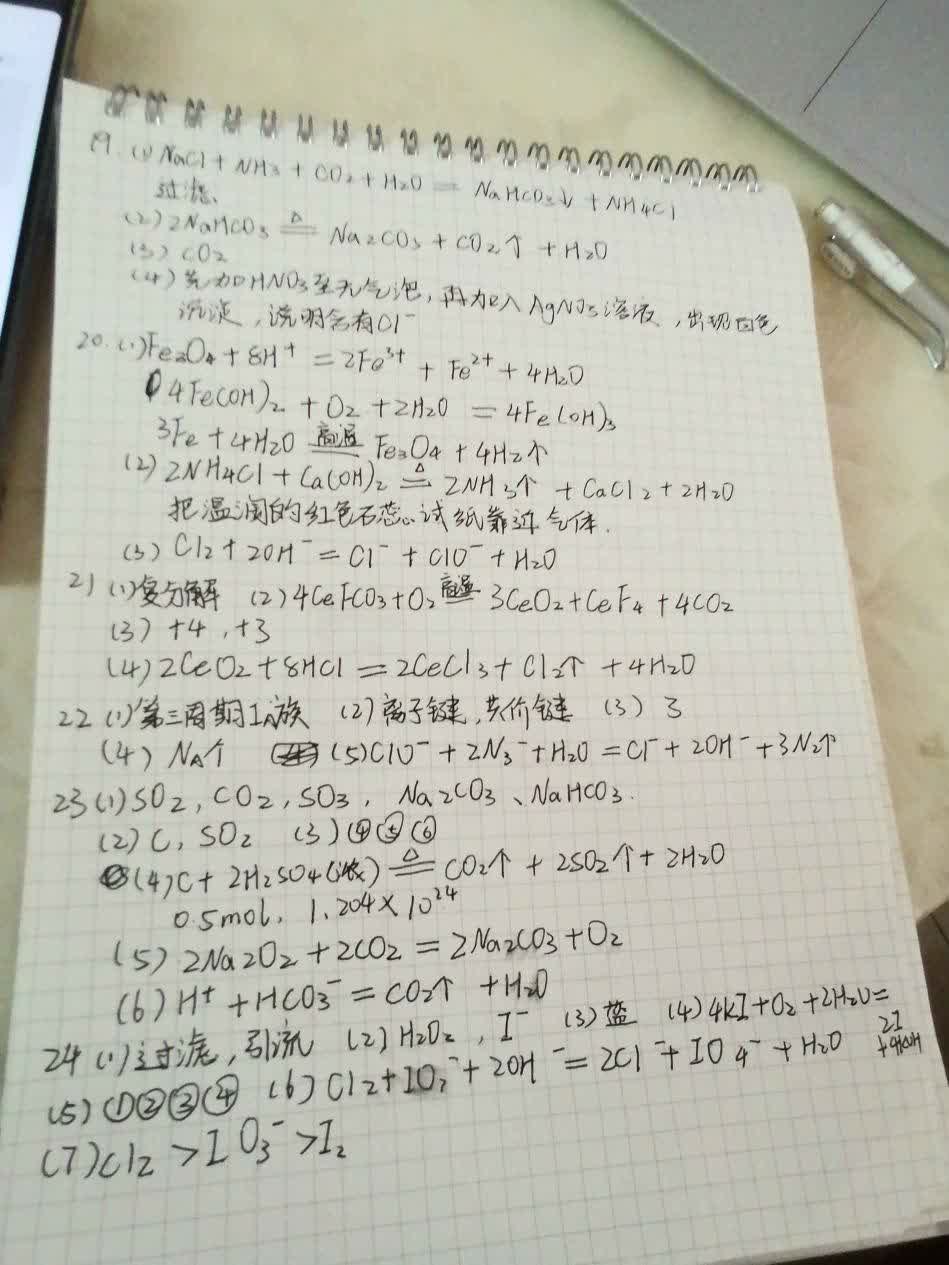 19. (1) NaCl + NH3 + CO2 + H2O = NaHCO3↓ + NH4Cl
过滤
(2) 2NaHCO3 ≜ Na2CO3 + CO2↑ + H2O
(3) CO2
(4) 先加HNO3至无气泡，再加入AgNO3溶液，出现白色
沉淀，说明含有Cl⁻
20. (1) Fe3O4 + 8H⁺ = 2Fe³⁺ + Fe²⁺ + 4H2O
4Fe(OH)2 + O2 + 2H2O = 4Fe(OH)3
3Fe + 4H2O 高温 Fe3O4 + 4H2↑
(2) 2NH4Cl + Ca(OH)2 ≜ 2NH3↑ + CaCl2 + 2H2O
把湿润的红色石蕊试纸靠近气体.
(3) Cl2 + 2OH⁻ = Cl⁻ + ClO⁻ + H2O
21 (1) 复分解 (2) 4CeFCO3 + O2 高温 3CeO2 + CeF4 + 4CO2
(3) +4, +3
(4) 2CeO2 + 8HCl = 2CeCl3 + Cl2↑ + 4H2O
22 (1) 第三周期IA族 (2) 离子键, 共价键 (3) 3
(4) NA个 (5) ClO⁻ + 2N3⁻ + H2O = Cl⁻ + 2OH⁻ + 3N2↑
23 (1) SO2, CO2, SO3, Na2CO3、NaHCO3.
(2) C, SO2 (3) ④⑤⑥
(4) C + 2H2SO4(浓) ≜ CO2↑ + 2SO2↑ + 2H2O
0.5mol, 1.204×10²⁴
(5) 2Na2O2 + 2CO2 = 2Na2CO3 + O2
(6) H⁺ + HCO3⁻ = CO2↑ + H2O
24 (1) 过滤, 引流 (2) H2O2, I⁻ (3) 蓝 (4) 4KI + O2 + 2H2O =
2I
(5) ①②③④ (6) Cl2 + IO3⁻ + 2OH⁻ = 2Cl⁻ + IO4⁻ + H2O
(7) Cl2 > IO3⁻ > I2